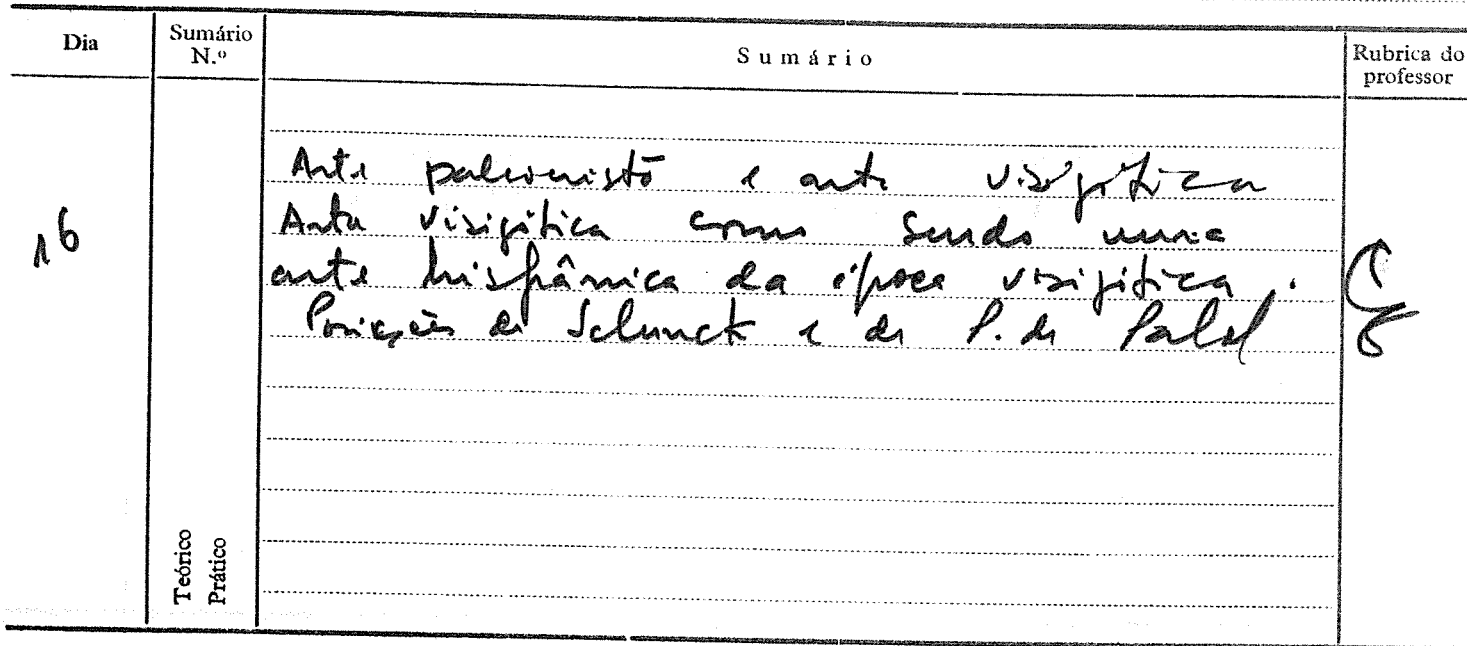 Dia
Sumário N.º
Sumário
Rubrica do professor
16
Arte paleocristã e arte visigótica
Arte visigótica como sendo uma
arte hispânica da época visigótica.
Posições de Schunck e de P. de Palol
Teórico
Prático